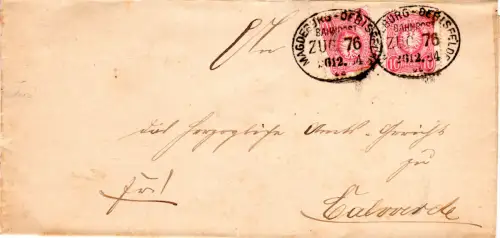 An
MAGDEBURG-OEBISFELDE
BAHNPOST
ZUG 76
2612.84
BURG-OEBISFELDE
BAHNPOST
ZUG 76
2612.84
10
das Herzogliche Amts-Gericht
zu
Fr!
Calvoerde